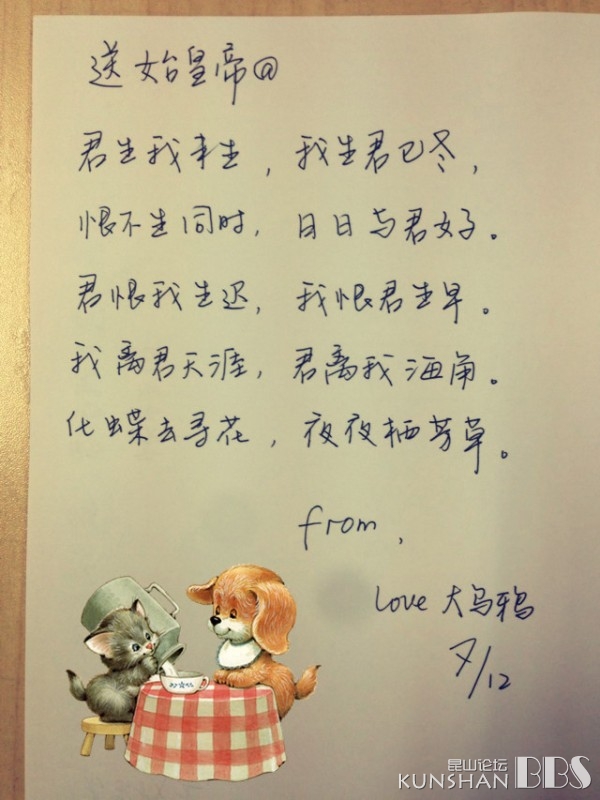 送始皇帝@
君生我未生，我生君已冬，
恨不生同时，日日与君好。
君恨我生迟，我恨君生早。
我离君天涯，君离我海角。
化蝶去寻花，夜夜栖芳草。
from,
Love 大乌鸦
7/12
昆山论坛
KUNSHAN BBS